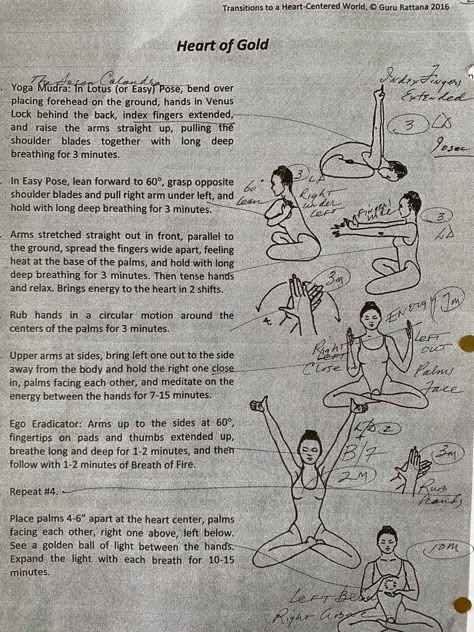 Transitions to a Heart-Centered World, © Guru Rattana 2016
Heart of Gold
Index Fingers
Extended
Yoga Mudra: In Lotus (or Easy) Pose, bend over
placing forehead on the ground, hands in Venus
Lock behind the back, index fingers extended,
and raise the arms straight up, pulling the
shoulder blades together with long deep
breathing for 3 minutes.
3 LD
In Easy Pose, lean forward to 60°, grasp opposite
shoulder blades and pull right arm under left, and
hold with long deep breathing for 3 minutes.
60°
Lean
3 LD
Right
under
Left
Arms stretched straight out in front, parallel to
the ground, spread the fingers wide apart, feeling
heat at the base of the palms, and hold with long
deep breathing for 3 minutes. Then tense hands
and relax. Brings energy to the heart in 2 shifts.
Fingers
wide
3
LD
Rub hands in a circular motion around the
centers of the palms for 3 minutes.
3m
Upper arms at sides, bring left one out to the side
away from the body and hold the right one close
in, palms facing each other, and meditate on the
energy between the hands for 7-15 minutes.
Energy
Right
Close
Left
out
Palms
Face
Ego Eradicator: Arms up to the sides at 60°,
fingertips on pads and thumbs extended up,
breathe long and deep for 1-2 minutes, and then
follow with 1-2 minutes of Breath of Fire.
2
B/F
2 M
Repeat #4.
3m
Rub
Hands
Place palms 4-6” apart at the heart center, palms
facing each other, right one above, left below.
See a golden ball of light between the hands.
Expand the light with each breath for 10-15
minutes.
10m
Left Below
Right Above